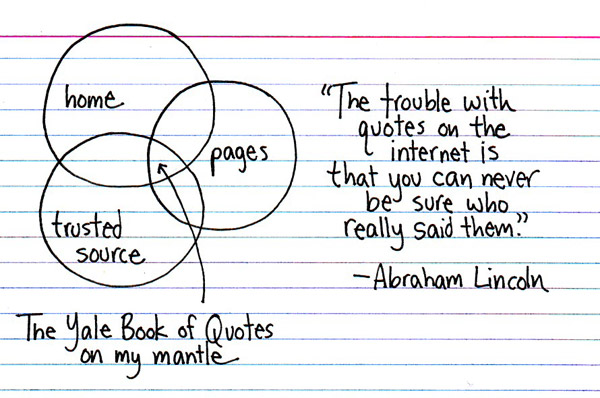 home
pages
trusted
source
The Yale Book of Quotes
on my mantle
"The trouble with
quotes on the
internet is
that you can never
be sure who
really said them."
—Abraham Lincoln